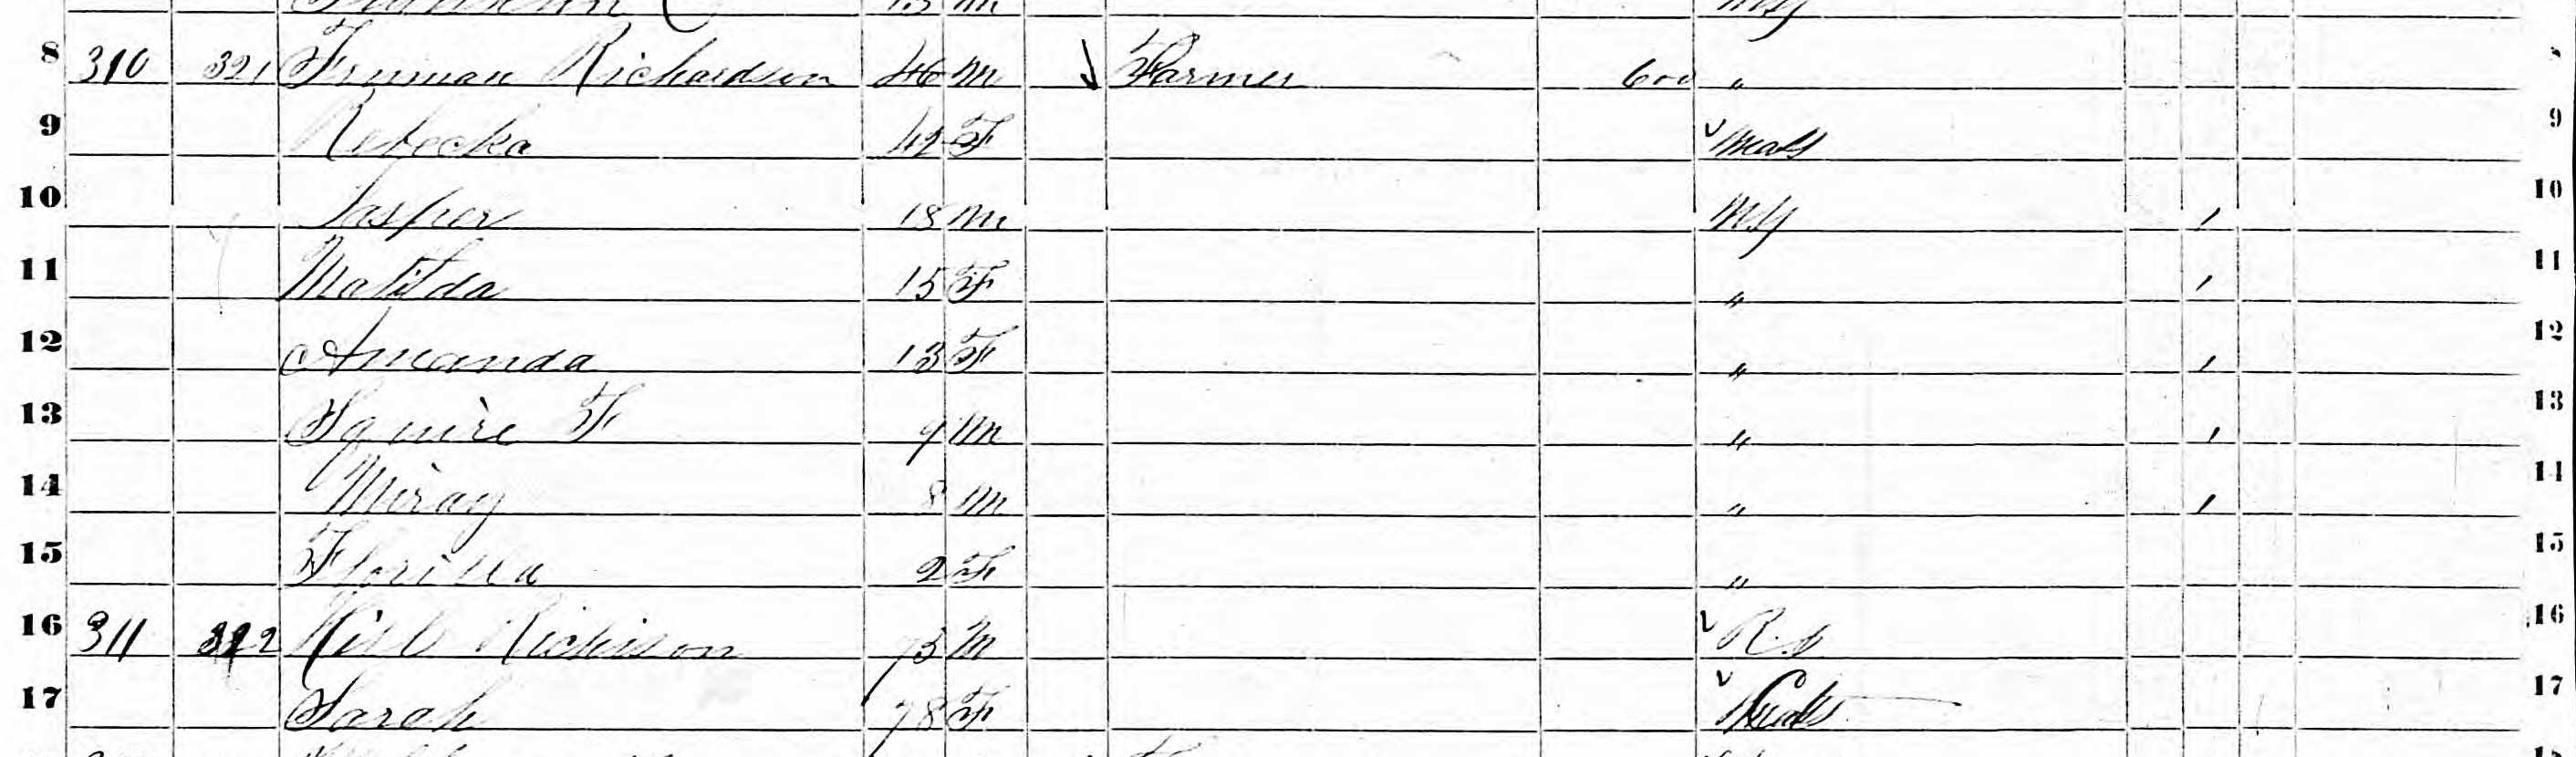 8 310 321 Truman Richardson 46 M Farmer 600 " 8
9 Rebecka 42 F 9
10 Jasper 18 M NY / 10
11 Matilda 15 F " / 11
12 Amanda 13 F " / 12
13 Squire F 9 M " / 13
14 Miray 8 M " / 14
15 Florilla 2 F " 15
16 311 322 Richison 75 M R.I 16
17 Sarah 78 F 17